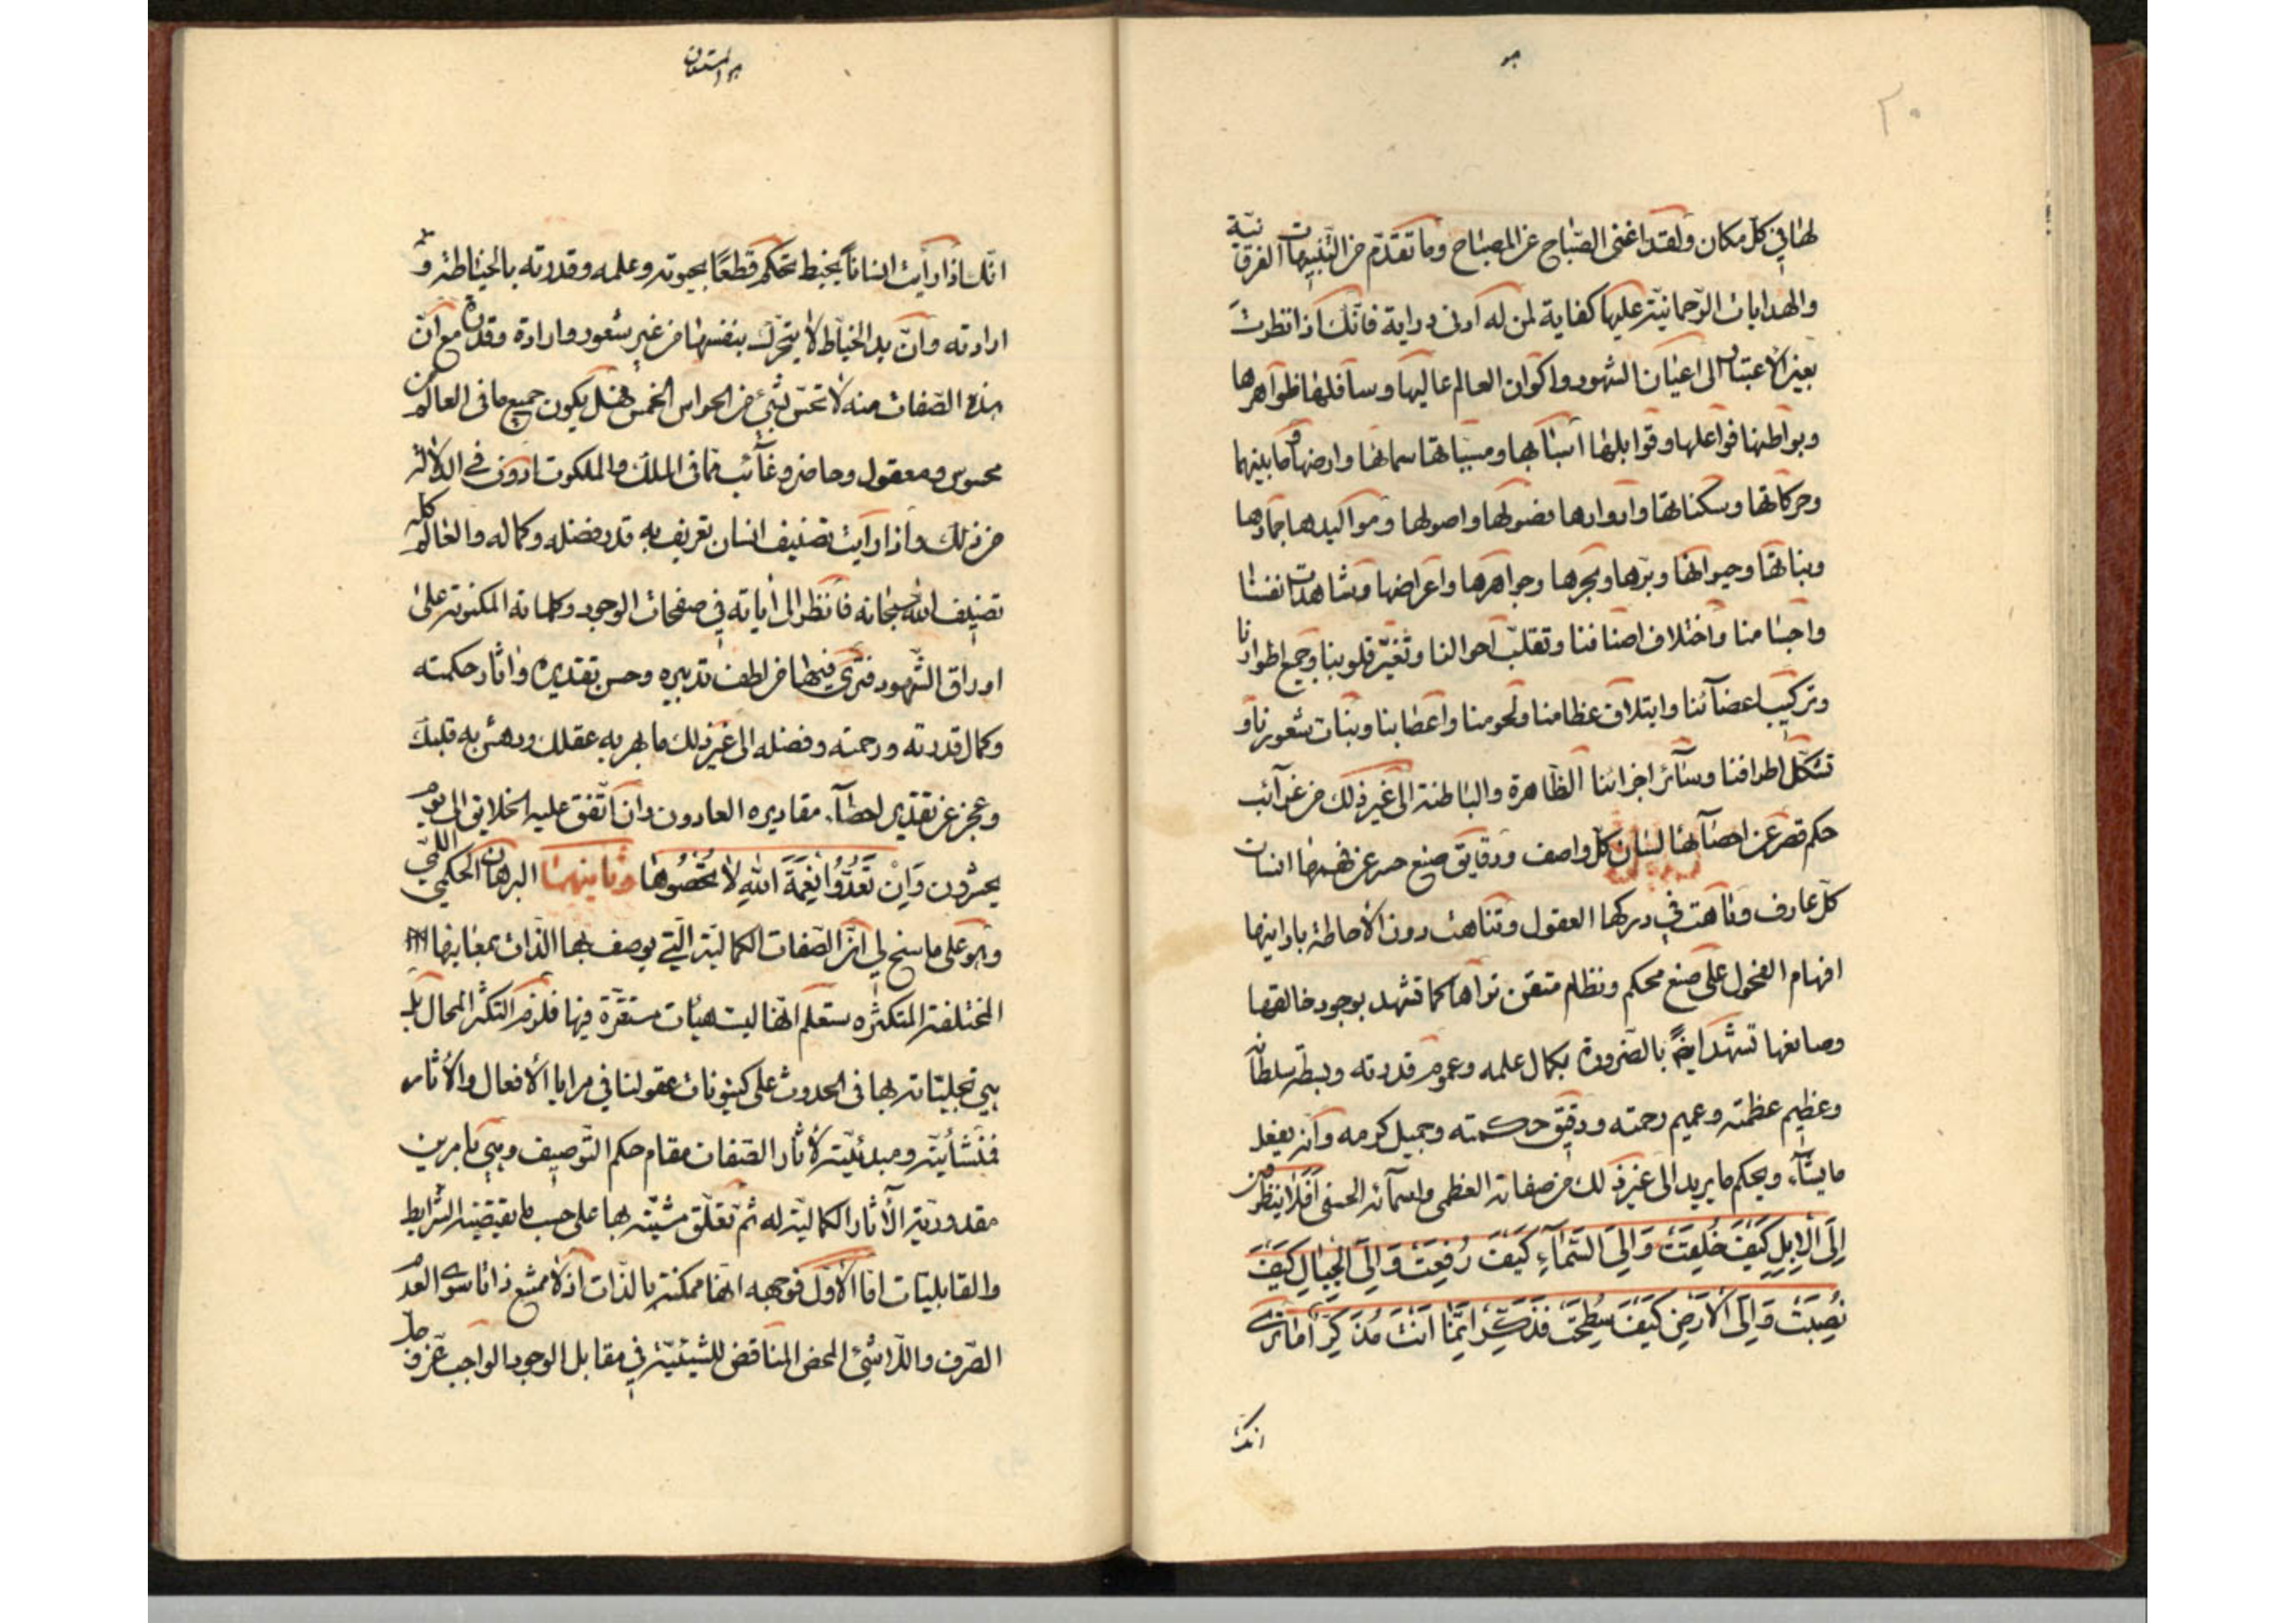 هو
٢٠
لها في كل مكان ولقد اغنى الصباح عن المصباح وما تقدم من التنبيهات الفرقانية
والهدايات الرحمانية عليها كفاية لمن له ادنى دراية فانك اذا نظرت
بعين الاعتبار الى اعيان الشهود واكوان العالم عاليها وسافلها ظواهرها
وبواطنها فواعلها وقوابلها اسبابها ومسبباتها سمائها وارضها وما بينهما
وحركاتها وسكناتها وادوارها فصولها واصولها ومواليدها جمادها
ونباتها وحيوانها وبرها وبحرها وجواهرها واعراضها ومشاهدات انفسنا
واجسامنا واختلاف اصنافنا وتقلب احوالنا وتغير قلوبنا وجميع اطوارنا
وتركيب اعضآئنا وايتلاف عظامنا ولحومنا واعصابنا ونبات شعورنا و
تشكل اطرافنا وسآئر اجزائنا الظاهرة والباطنة الى غير ذلك من غرآئب
حكم قصر عن احصآئها لسان كل واصف ودقايق صنع حسر عن فهمها انسان
كل عارف وتاهت في دركها العقول وتناهت دون الاحاطة بادانيها
افهام الفحول على صنع محكم ونظام متقن تراها كما تشهد بوجود خالقها
وصانعها تشهد ايضً بالضرورة بكمال علمه وعموم قدرته وبسطة سلطانه
وعظيم عظمته وعميم رحمته ودقيق حكمته وجميل كرمه وانه يفعل
ما يشآء ويحكم ما يريد الى غير ذلك من صفاته العظمى واسمآئه الحسنى افلا ينظرون
اِلَى الْاِبِلِ كَيْفَ خُلِقَتْ وَاِلَى السَّمَآءِ كَيْفَ رُفِعَتْ وَاِلَى الْجِبَالِ كَيْفَ
نُصِبَتْ وَاِلَى الْاَرْضِ كَيْفَ سُطِحَتْ فَذَكِّرْ اِنَّمَا اَنْتَ مُذَكِّرٌ اما ترى
انك
هو المستعان
انك اذا رأيت انساناً يخيط تحكم قطعًا بحيوته وعلمه وقدرته بالخياطة و
ارادته وان يد الخياط لا يتحرك بنفسها من غير شعور وارادة وقدرة مع ان
هذه الصفات منه لا تحس بشئ من الحواس الخمس فهل يكون جميع ما في العالم من
محسوس ومعقول وحاضر وغآئب مما في الملك والملكوت ادون في الدلالة
من ذلك واذا رأيت تصنيف انسان تعرف به قدر فضله وكماله والعالم كله
تصنيف الله سبحانه فانظر الى اياته في صفحات الوجود وكلماته المكنونة على
اوراق الشهود فترى فيها من لطف تدبيره وحسن تقديره واثار حكمته
وكمال قدرته ورحمته وفضله الى غير ذلك ما بهر به عقلك ودهش به قلبك
وعجز عن تقدير احصآء مقاديره العادون وان اتفق عليه الخلايق الى يوم
يحشرون وَاِنْ تَعُدُّوا نِعْمَةَ اللهِ لَا تُحْصُوهَا وثانيهما البرهان الحكمي اللمي
وهو على ما سنح لي ان الصفات الكمالية التي يوصف بها الذات بمعانيها
المختلفة المتكثرة ستعلم انها ليست هيئات مستقرة فيها فلزم التكثر المحال بل
هي تجلياته بها في الحدوث على كينونات عقولنا في مرايا الافعال والاثار
فمنشأية ومبدئية لاثار الصفات مقام حكم التوصيف وهي بامرين
مقدورية الآثار الكمالية له ثم تعلق مشيته بها على حسب ما يقتضيه الشرايط
والقابليات اما الاول فوجهه انها ممكنة بالذات اذ لا ممتنع ذاتا سوى العدم
الصرف واللاشئ المحض المناقض للشيئية في مقابل الوجود الواجب عز وجل